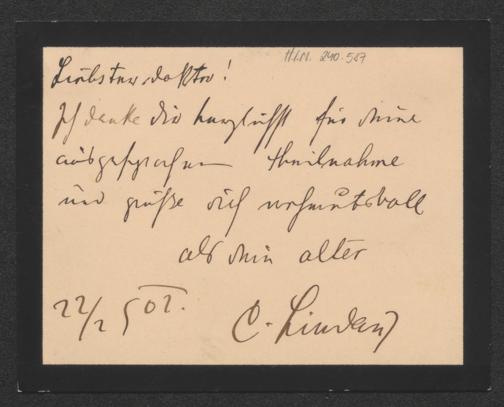 H.I.N. 240.587
Liebster Doktor!
Ich danke dir herzlichst für deine
ausgesprochene Theilnahme
und grüße dich wehmutsvoll
als dein alter
22/2 502.
C. Lindau